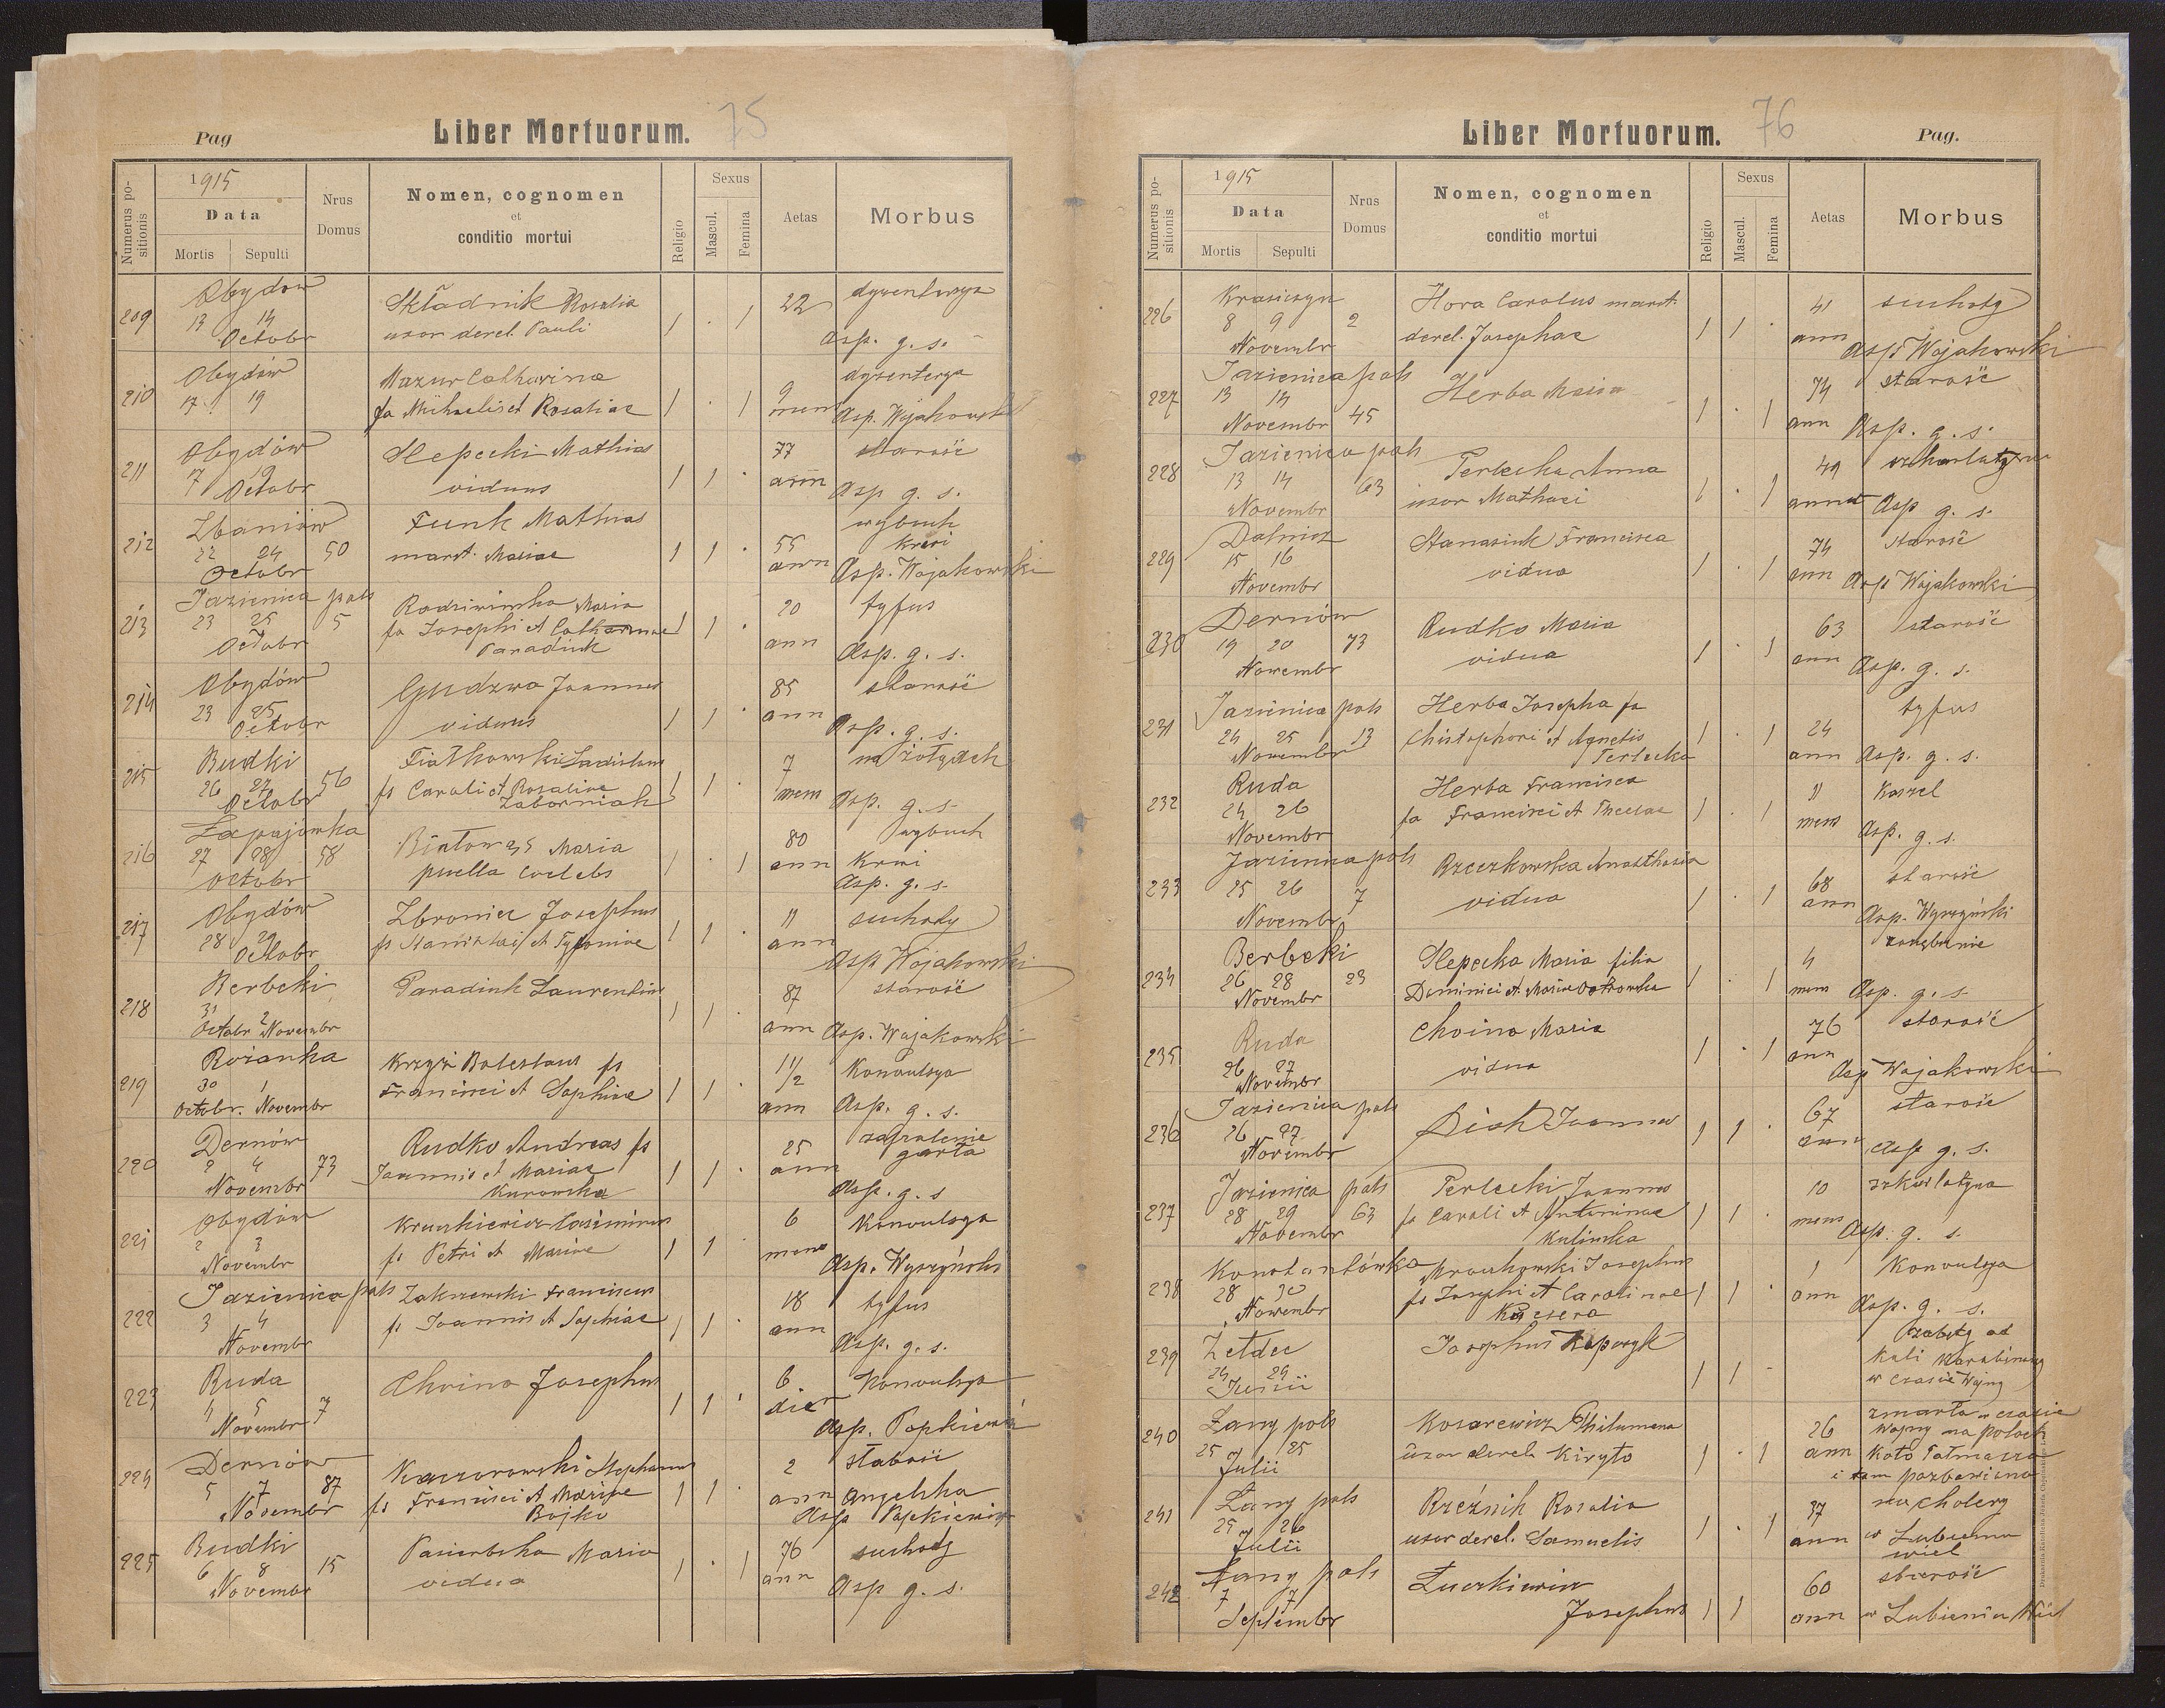 Pag
Liber Mortuorum.
75
Numerus positionis
1915
Data
Mortis
Sepulti
Nrus Domus
Nomen, cognomen
et
conditio mortui
Religio
Sexus
Mascul.
Femina
Aetas
Morbus
209 Obydów 13 14 Octobr
Składnik Rosalia
uxor derel. Pauli
1 . 1 22 dyzenterya
Asp. g. s.
210 Obydów 17 19
Mazur Catharina
fa Michaelis et Rosaliae
1 . 1 9 mens dyzenterya
Asp. Wojakowski
211 Obydów 17 19 Octobr
Slepecki Mathias
viduus
1 1 . 77 ann starość
Asp g. s.
212 Zbaniów 22 24 Octobr 50
Funk Mathias
marit. Mariae
1 1 . 55 ann wybuch
krwi
Asp. Wojakowski
213 Jazienica pols 23 25 Octobr 5
Maria
fa Josephi et Catharinae
Paradiuk
1 1 . 20 ann tyfus
Asp. g. s.
214 Obydów 23 25 Octobr
Gudzwa Joannes
viduus
1 1 . 85 ann starość
Asp. g. s.
215 Budki 26 27 Octobr 56
Fiałkowski Ladislaus
fs Caroli et Rosaliae
Zaborniak
1 1 . 7 mens
Asp. g. s.
216 Łapajówka 27 28 Octobr 58
Maria
puella coelebs
1 . 1 80 ann wybuch
krwi
Asp. g. s.
217 Obydów 28 29 Octobr
Zbroniec Josephus
fs Stanislai et
1 1 . 11 ann suchoty
Asp Wojakowski
218 Berbeki 31 Octobr 2 Novembr
Paradiuk Laurentius
1 1 . 87 ann starość
Asp. Wojakowski
219 Rożanka 30 Octobr. 1 Novembr
Krzyż Boleslaus fs
Francisci et Sophiae
1 1 . 1 1/2 ann Konvulsya
Asp. g. s.
220 Dernów 2 4 Novembr 73
Rudko Andreas fs
Joannis et Mariae
Kurowska
1 1 . 25 ann zapalenie
garła
Asp. g. s
221 Obydów 2 3 Novembr
Kruszkiewicz Casimirus
fs Petri et Mariae
1 1 . 6 mens Konvulsya
Asp. Wyszyński
222 Jazienica pols 3 4 Novembr
Zakrzewski Franciscus
fs Joannis et Sophiae
1 1 . 18 ann tyfus
Asp. g. s.
223 Ruda 4 5 Novembr 7
Choina Josephus
1 1 . 6 die Konvulsya
Asp. Popkiewicz
224 Dernów 5 7 Novembr 87
Kaczorowski Stephanus
fs Francisci et Mariae
Bojko
1 1 . 2 ann słabość
angelska
Asp Popkiewicz
225 Budki 6 8 Novembr 15
Pasierbska Maria
vidua
1 . 1 76 ann suchoty
Asp g. s.
Liber Mortuorum.
76
Pag.
Numerus positionis
1915
Data
Mortis
Sepulti
Nrus Domus
Nomen, cognomen
et
conditio mortui
Religio
Sexus
Mascul.
Femina
Aetas
Morbus
226 Krasiczyn 8 9 Novembr 2
Hora Carolus marit.
derel. Josephae
1 1 . 41 ann suchoty
Asp Wojakowski
227 Jazienica pols 13 14 Novembr 45
Herba Maria
1 . 1 74 ann starość
Asp. g. s.
228 Jazienica pols 13 14 Novembr 63
Terlecka Anna
uxor Mathaei
1 . 1 49 ann szkarlatyna
Asp g. s.
229 Dalnicz 15 16 Novembr
Stanasiuk Francisca
vidua
1 . 1 74 ann starość
Asp Wojakowski
230 Dernów 19 20 Nowembr 73
Rudko Maria
vidua
1 . 1 63 ann starość
Asp. g. s.
231 Jazienica pols 24 25 Novembr 13
Herba Josepha fa
Christophori et Agnetis
Terlecka
1 . 1 24 ann tyfus
Asp. g. s.
232 Ruda 24 26 Novembr
Herba Francisca
fa Francisci et Theclae
1 . 1 11 mens Kaszel
Asp. g. s.
233 Jazienica pols 25 26 Novembr 7
Rzeczkowska Anasthasia
vidua
1 . 1 68 ann starość
Asp. Wyszyński
234 Berbeki 26 28 Novembr 23
Slepecka Maria filia
Dominici et Mariae Ostrowska
1 . 1 4 mens
Asp. g. s.
235 Ruda 26 27 Novembr
Choina Maria
vidua
1 . 1 76 ann starość
Asp Wojakowski
236 Jazienica pols 26 27 Novembr
Joannes
1 1 . 67 ann starość
Asp g. s.
237 Jazienica pols 28 29 Novembr 63
Terlecki Joannes
fs Caroli et Antoninae
Kulinska
1 1 . 10 mens szkarlatyna
Asp. g. s.
238 Konstantówka 28 30 Nowembr
Mroczkowski Josephus
fs Josephi et Carolinae
1 1 . 1 ann Konvulsya
Asp. g. s.
239 Żeldec 24 24 Junii
Josephus Kopczyk
1 1 - zabity od
kuli karabinowej
w czasie wojny
240 Łany pols 25 25 Julii
Kosarewicz Philumena
uxor derel. Kiryło
1 . 1 26 ann zmarła w czasie
wojny na polach
koło
i tam pogrzebiona
241 Łany pols 25 26 Julii
Rzeźnik Rosalia
uxor derel. Samuelis
1 . 1 37 ann na cholerę
w Lubieniu
wiel
242 Łany pols 7 7 Septembr
Łuczkiewicz
Josephus
1 1 60 ann starość
w Lubieniu Wiel